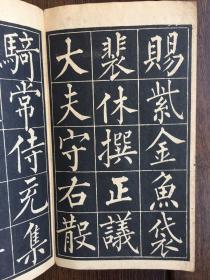 賜紫金魚袋
裴休撰正議
大夫守右散
騎常侍充集